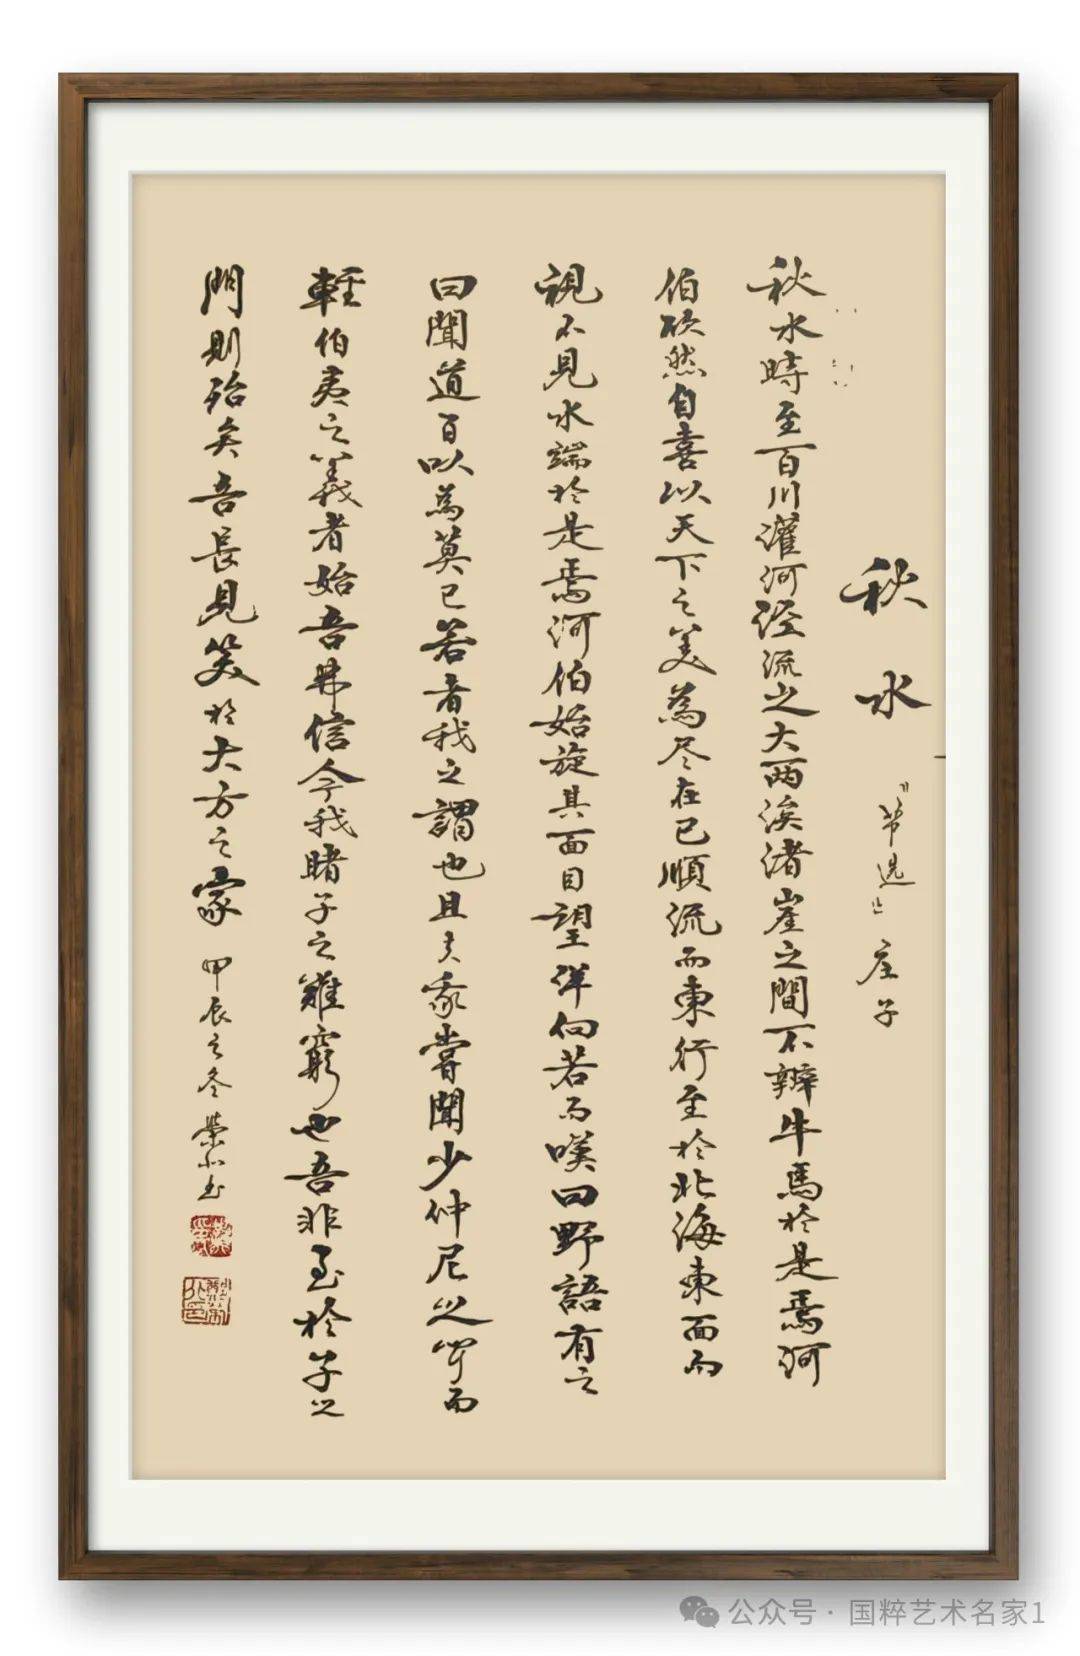 秋水
『節选』庄子
秋水時至百川灌河泾流之大两涘渚崖之間不辨牛馬於是焉河
伯欣然自喜以天下之美為尽在己順流而東行至於北海東面而
視不見水端於是焉河伯始旋其面目望洋向若而嘆曰野語有之
曰聞道百以為莫己若者我之謂也且夫我嘗聞少仲尼之聞而
輕伯夷之義者始吾弗信今我睹子之難窮也吾非至於子之
門則殆矣吾長見笑於大方之家
甲辰之冬
公众号·国粹艺术名家1